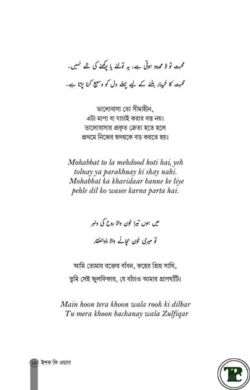 محبت تو لا محدود ہوتی ہے، یہ تولنے یا پرکھنے کی شے نہیں۔
محبت کا خریدار بننے کے لیے پہلے دل کو وسیع کرنا پڑتا ہے۔
ভালোবাসা তো সীমাহীন,
এটা মাপা বা যাচাই করার বস্তু নয়।
ভালোবাসার প্রকৃত ক্রেতা হতে হলে
প্রথমে নিজের হৃদয়কে বড় করতে হয়।
Mohabbat to la mehdood hoti hai, yeh
tolnay ya parakhnay ki shay nahi.
Mohabbat ka kharidaar banne ke liye
pehle dil ko wasee karna parta hai.
میں ہوں تیرا خون والا روح کی دلبر
تو میری خون بچانے والا ذوالفقار
আমি তোমার রক্তের বাঁধন, রুহের প্রিয় সাথি,
তুমি সেই জুলফিকার, যে বাঁচাও আমার প্রাণঘাটি।
Main hoon tera khoon wala rooh ki dilbar
Tu mera khoon bachanay wala Zulfiqar
ইশক কি ওয়াসা